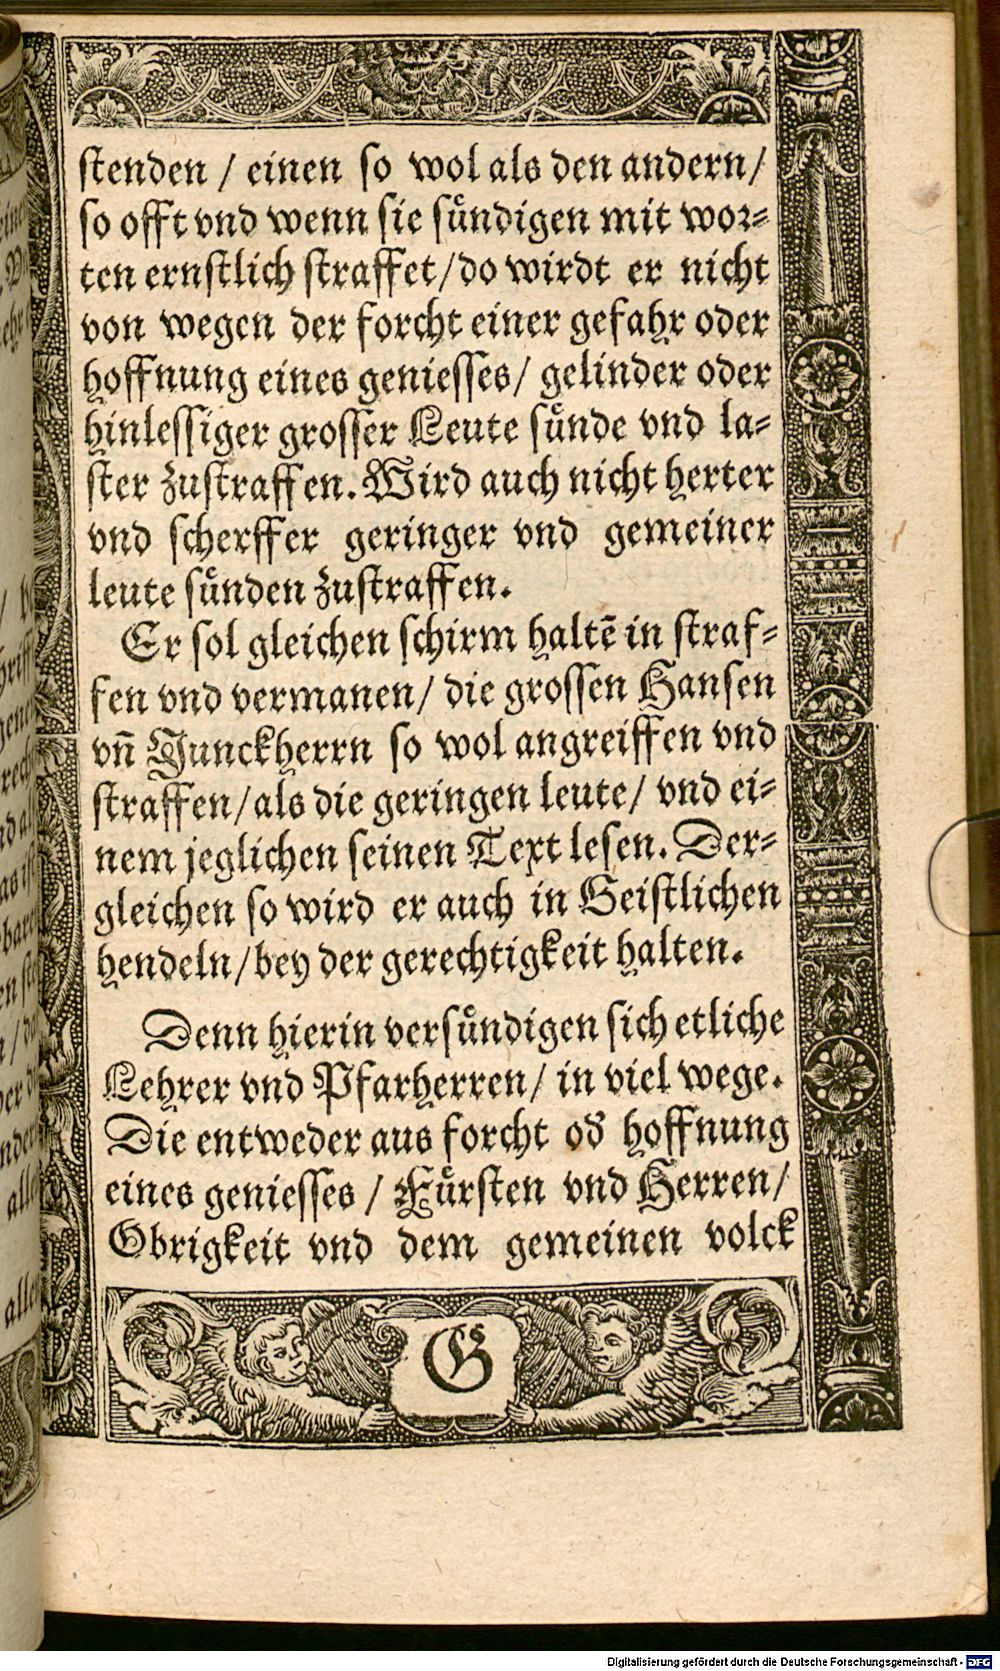 stenden / einen so wol als den andern/
so offt vnd wenn sie suͤndigen mit wor⸗
ten ernstlich straffet/do wirdt er nicht
von wegen der forcht einer gefahr oder
hoffnung eines geniesses/ gelinder oder
hinlessiger grosser Leute suͤnde vnd la⸗
ster zustraffen. Wird auch nicht herter
vnd scherffer geringer vnd gemeiner
leute suͤnden zustraffen.
Er sol gleichen schirm haltẽ in straf⸗
fen vnd vermanen/ die grossen Hansen
vñ Junckherrn so wol angreiffen vnd
straffen/als die geringen leute/ vnd ei⸗
nem jeglichen seinen Text lesen. Der⸗
gleichen so wird er auch in Geistlichen
hendeln/bey der gerechtigkeit halten.
Denn hierin versuͤndigen sich etliche
Lehrer vnd Pfarherren/ in viel wege.
Die entweder aus forcht od' hoffnung
eines geniesses / Fuͤrsten vnd Herren/
Obrigkeit vnd dem gemeinen volck
G
Digitalisierung gefördert durch die Deutsche Forschungsgemeinschaft - DFG